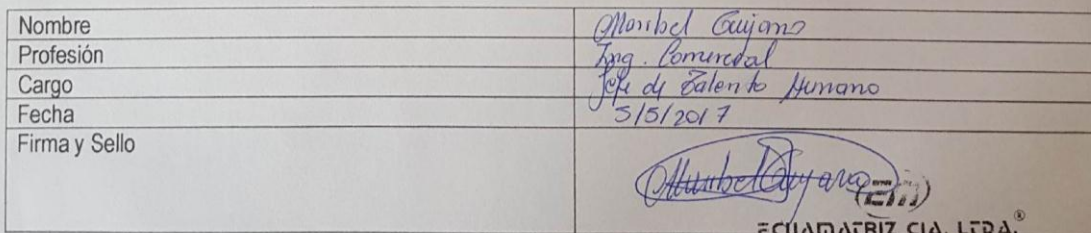 Nombre Maribel Guijarro
Profesión Ing. Comercial
Cargo Jefe de Talento Humano
Fecha 5/5/2017
Firma y Sello
ECUAMATRIZ CIA. LTDA.®